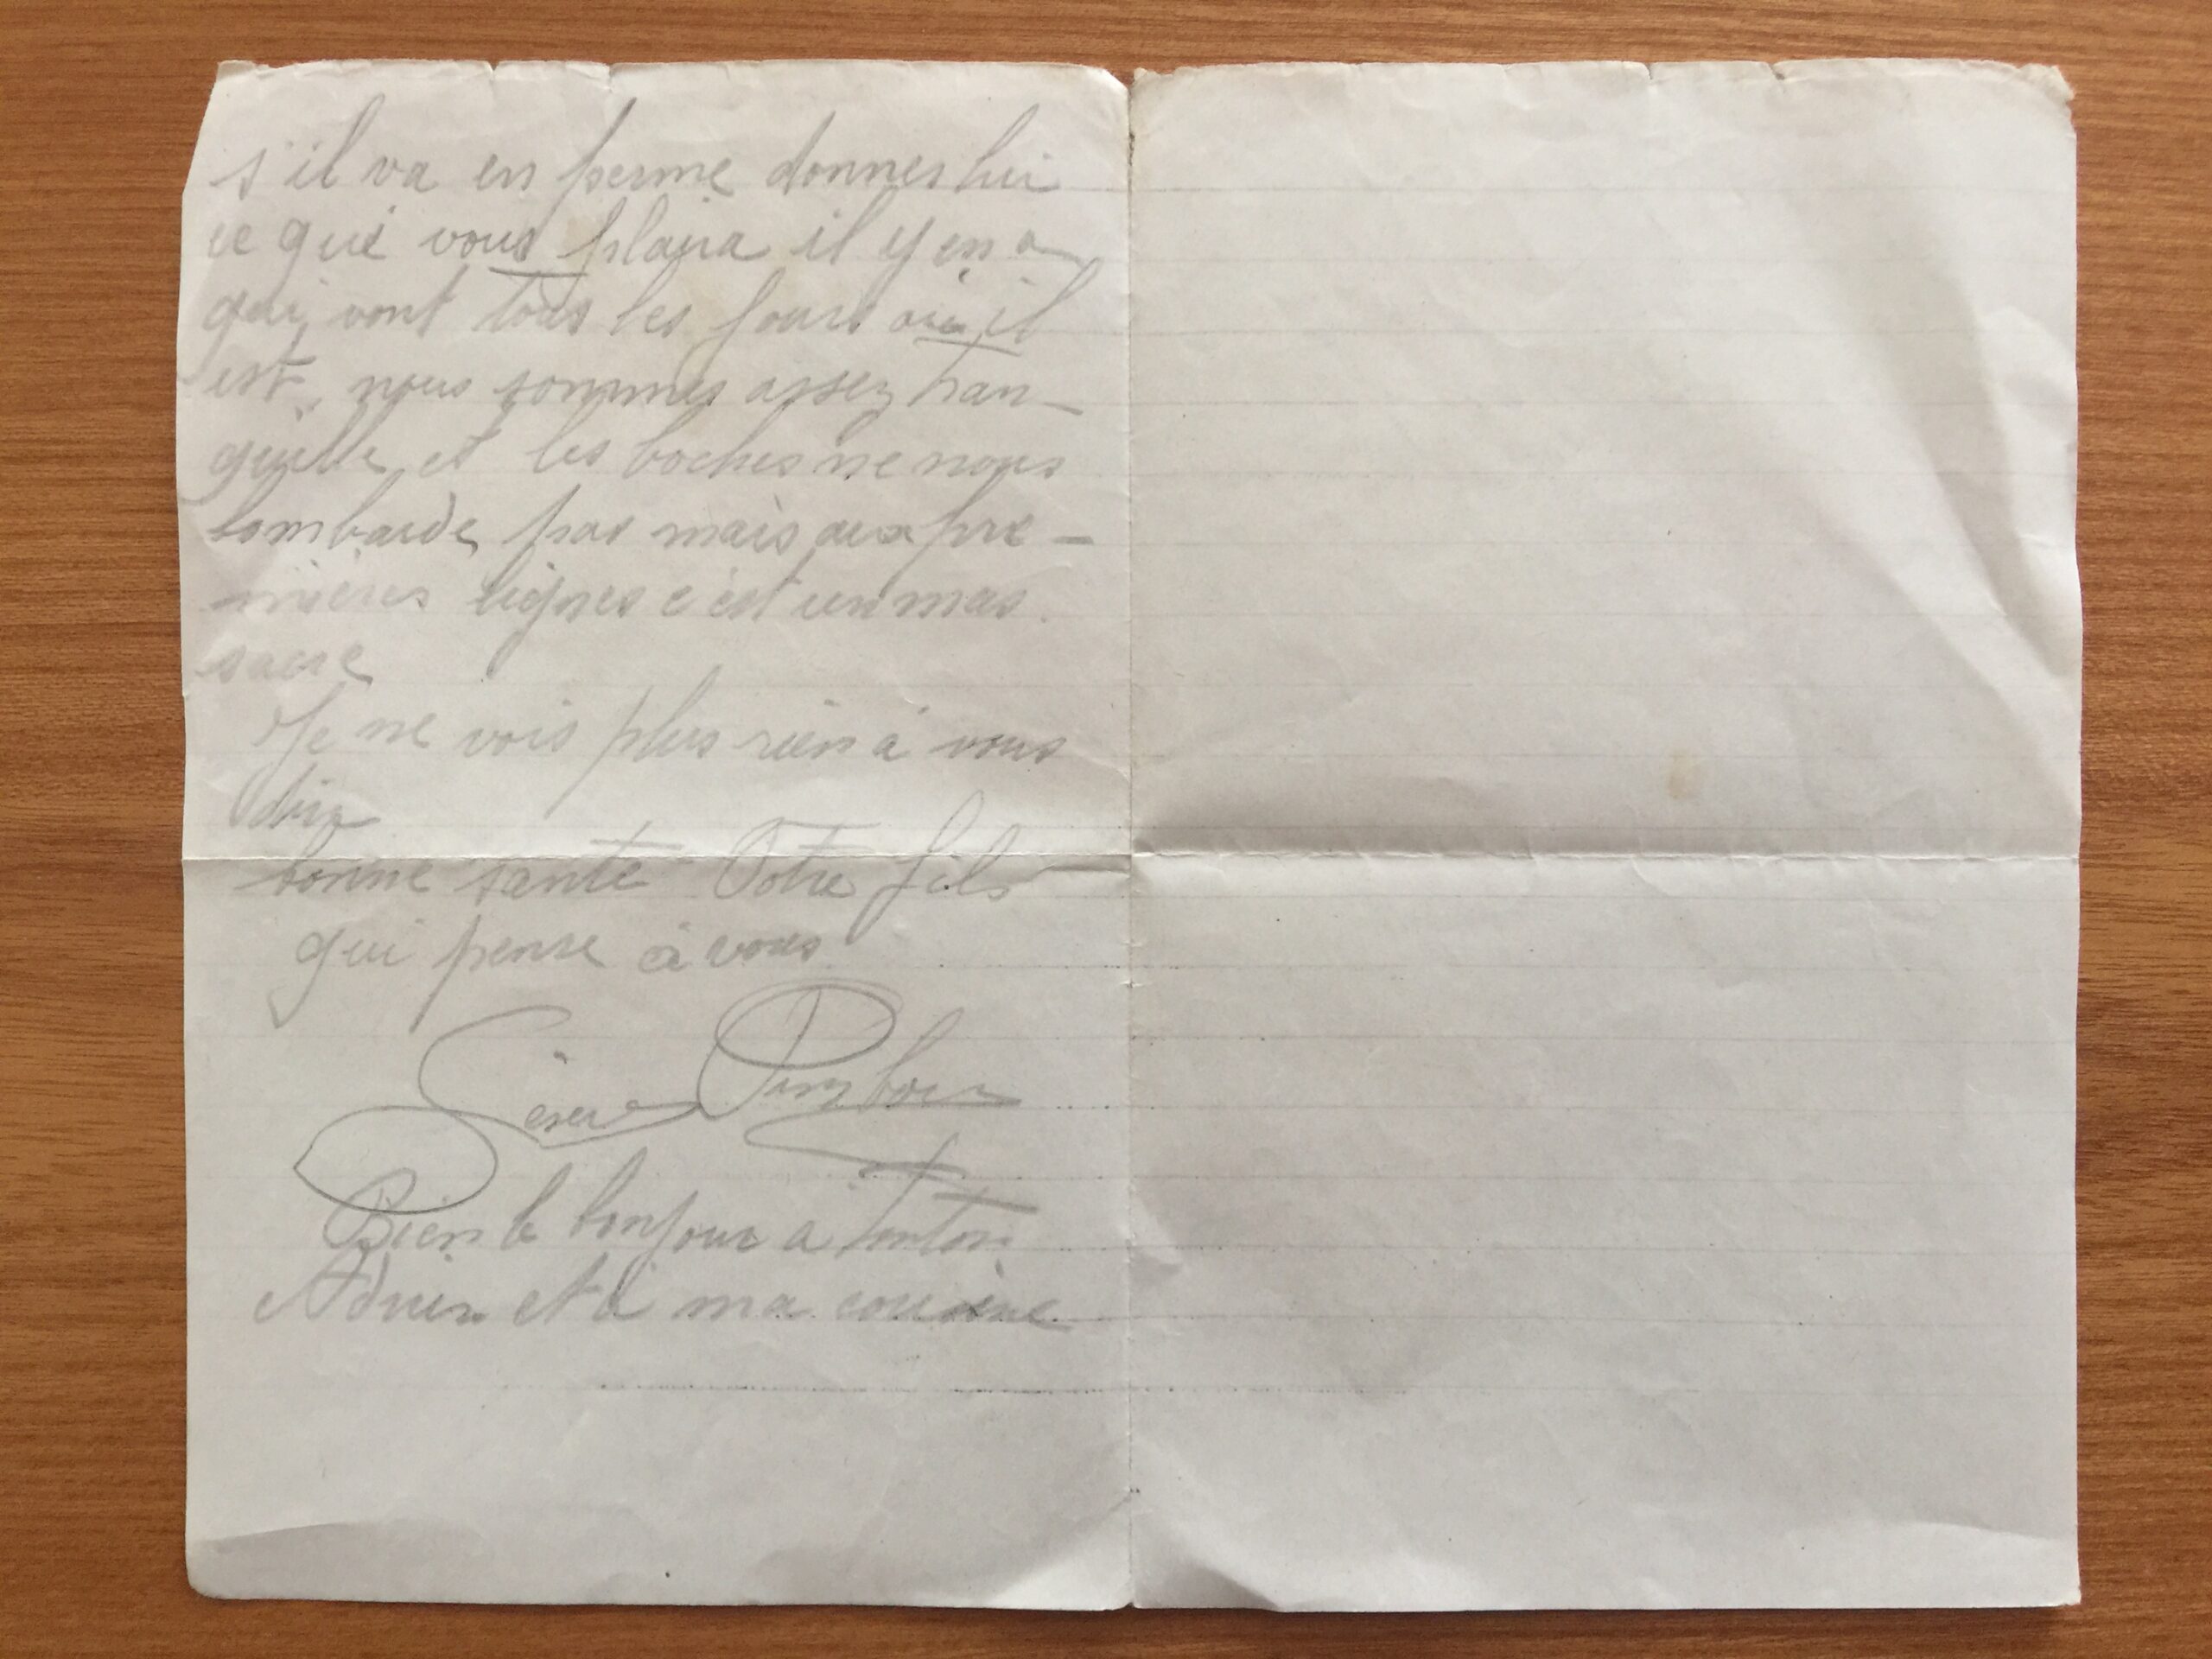 s'il va en perme donnes lui
ce qui vous plaira il y en a
qui vont tous les jours où il
est, nous sommes assez tran-
quille et les boches ne nous
bombarde pas mais aux pre-
mières lignes c'est un mas
sacre
Je ne vois plus rien à vous
dire
bonne santé Votre fils
qui pense à vous
César
Bien le bonjour a tonton
Adrien et à ma cousine